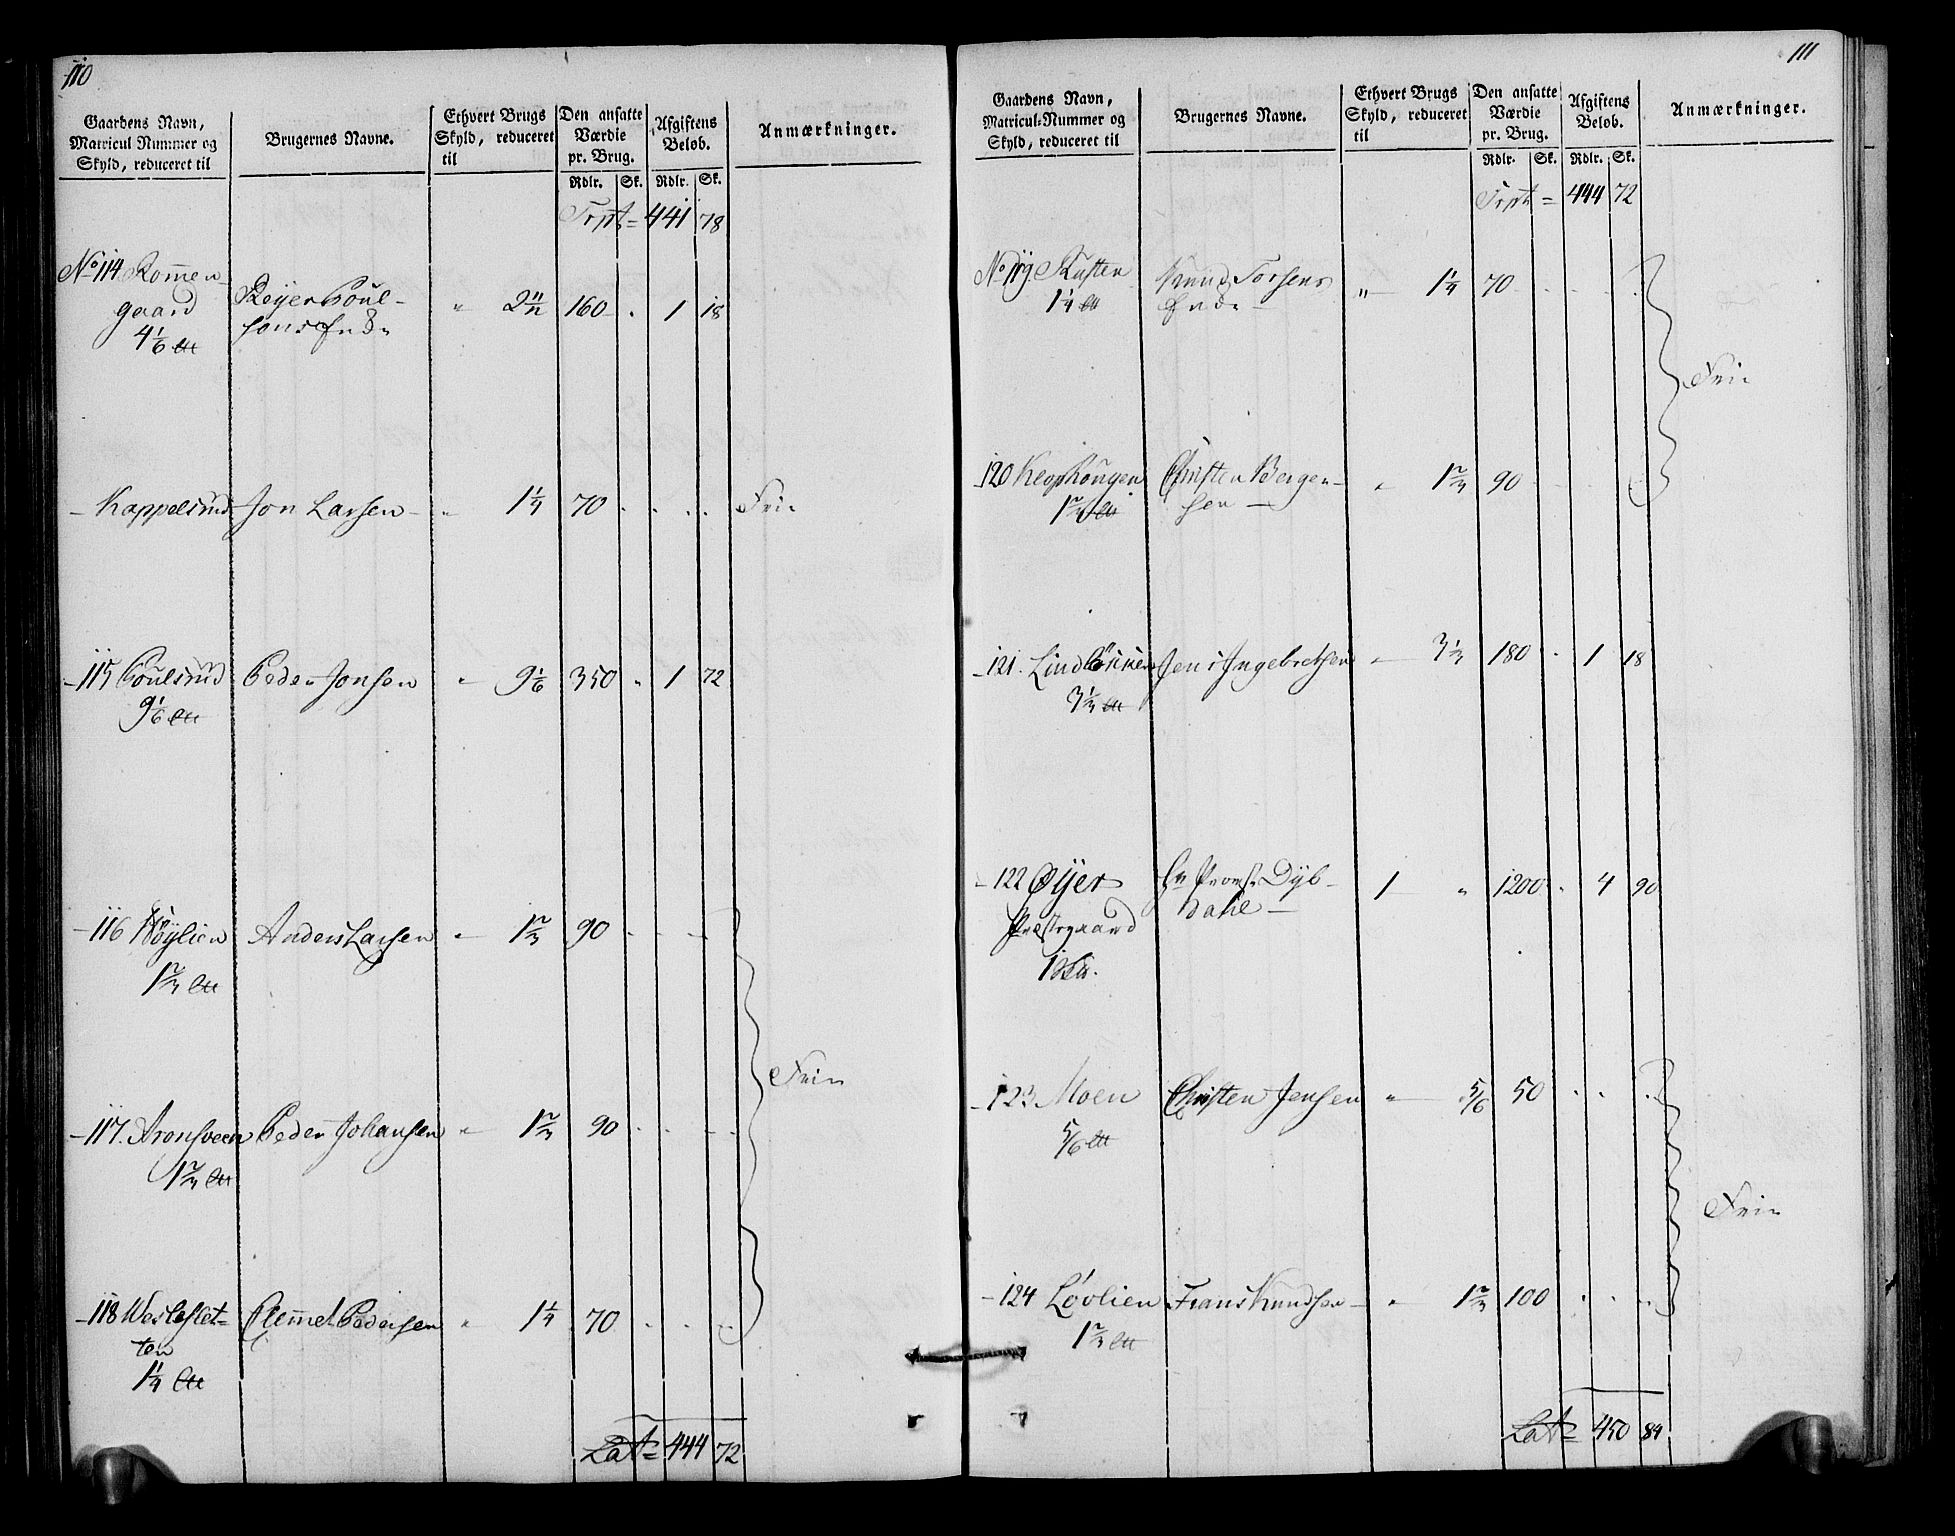 110
Gaardens Navn,
Matricul Nummer og
Skyld, reduceret til
Brugernes Navne.
Ethvert Brugs
Skyld, reduceret
til
Den ansatte
Værdie
pr. Brug.
Afgiftens
Beløb.
Anmærkninger.
Rdlr. Sk. Rdlr. Sk.
Trpt = 441 78
No 114 Rom̅en-
gaard
4 1/6
Reÿer Poul-
sons Enke
" 2 11/12 160 . 1 18
- Kappelsrud Jon Larsen - " 1 1/4 70 . . . . Frie
- 115 Poulsrud Peder Jonsen " 9 1/6 350 " 1 72
9 1/6
- 116 Höÿlien Anders Larsen " 1 2/3 90 . . . .
1 2/3
Frie
- 117. Aronsveen Peder Johansen " 1 2/3 90 . . . .
1 2/3
- 118 Wesleslet-
ten
1 1/4
Clem̅et Pedersen " 1 1/4 70 . . . .
Lat = 444 72
111
Gaardens Navn,
Matricul-Nummer og
Skyld, reduceret til
Brugernes Navne.
Ethvert Brugs
Skyld, reduceret
til
Den ansatte
Værdie
pr. Brug.
Afgiftens
Beløb.
Anmærkninger.
Rdlr. Sk. Rdlr. Sk.
Trpt = 444 72
No 119. Kusten
1 1/4
Knud Torsens
Enke -
" 1 1/4 70 . . . .
Frie
- 120 Klophougen
1 2/3
Christen Bergen-
sen -
" 1 2/3 90 . . . .
- 121. Lindbökken Jens Ingebretsen " 3 1/3 180 . 1 18
3 1/3
- 122 Øÿer
Præstegaard
1
Hr Provst Dÿb-
dahl -
1 " 1200 . 4 90
- 123 Moen Christen Jensen " 5/6 50 . . . .
5/6
Frie
- 124 Lövlien Frans Knudsen - " 1 2/3 100 . . . .
1 2/3
Lat = 450 84